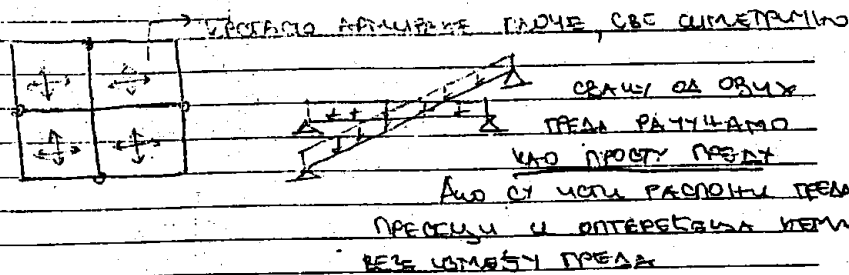 КРСТАСТО АРМИРАНЕ ПЛОЧЕ, СВЕ СИМЕТРИЧНО
СВАКУ ОД ОВИХ
ГРЕДА РАЧУНАМО
КАО ПРОСТУ ГРЕДУ
АКО СУ ИСТИ РАСПОНИ ГРЕДА
ПРЕСЕЦИ И ОПТЕРЕЋЕЊА НЕМА
ВЕЗЕ ИЗМЕЂУ ГРЕДА